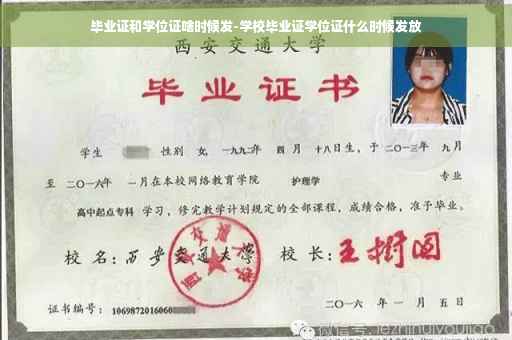 毕业证和学位证啥时候发-学校毕业证学位证什么时候发放
西安交通大学
毕业证书
学生 性别 女, 一九九二年 四月 十八日生, 于二〇一三年 九月
至 二〇一六年 一月在本校网络教育学院 护理学 专业
高中起点专科 学习, 修完教学计划规定的全部课程, 成绩合格, 准予毕业。
校 名: 西安交通大学 校 长: 王树国
西安交通大学
证书编号: 1069872016060
二〇一六 年 一 月 五 日
微信号: jezhihuiyoujiao